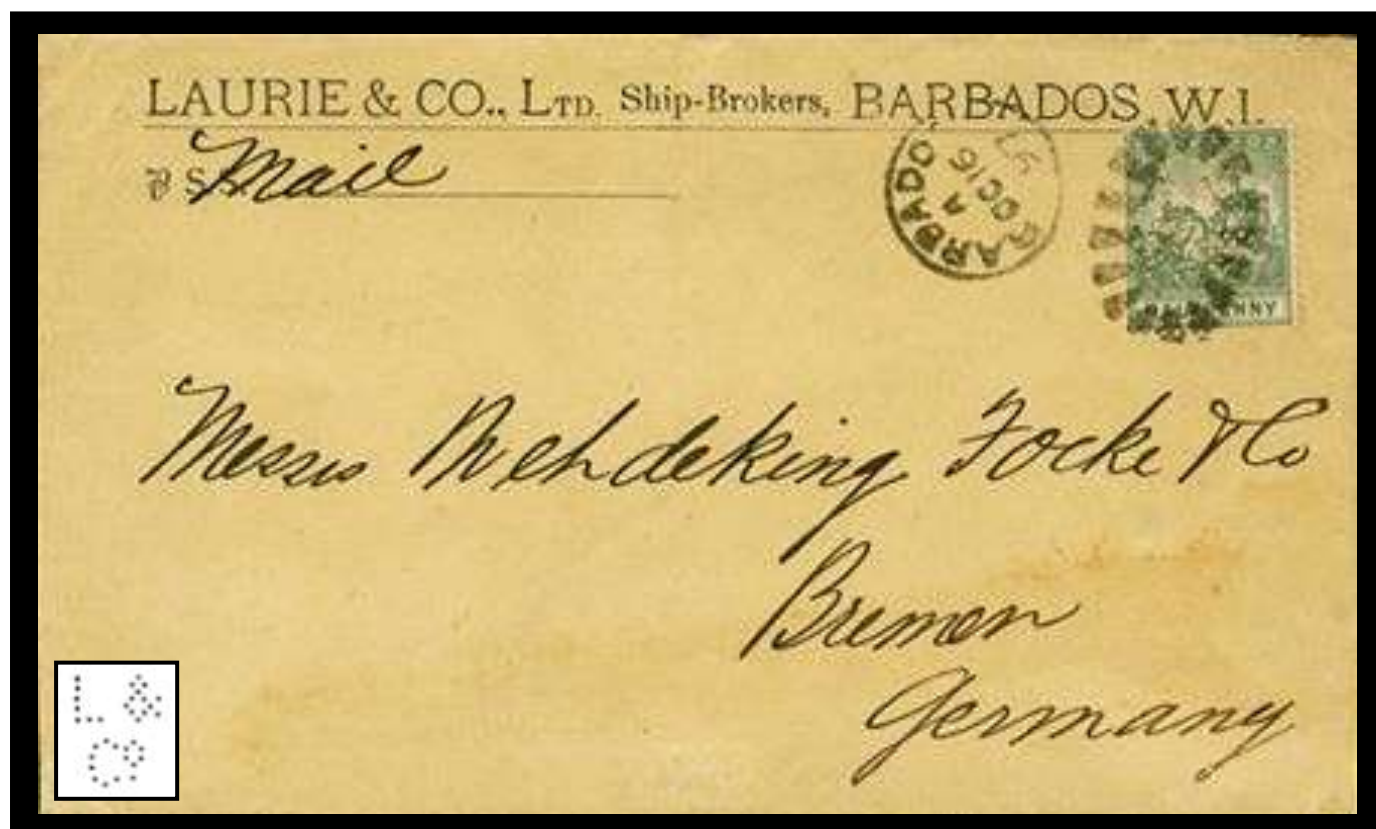 LAURIE & CO., LTD. Ship-Brokers, BARBADOS, W.I.
℔ S Mail
BARBADO
A
OC 16
97
HALFPENNY
Messrs Mehdeking Focke & Co
Bremen
Germany
L &
Co